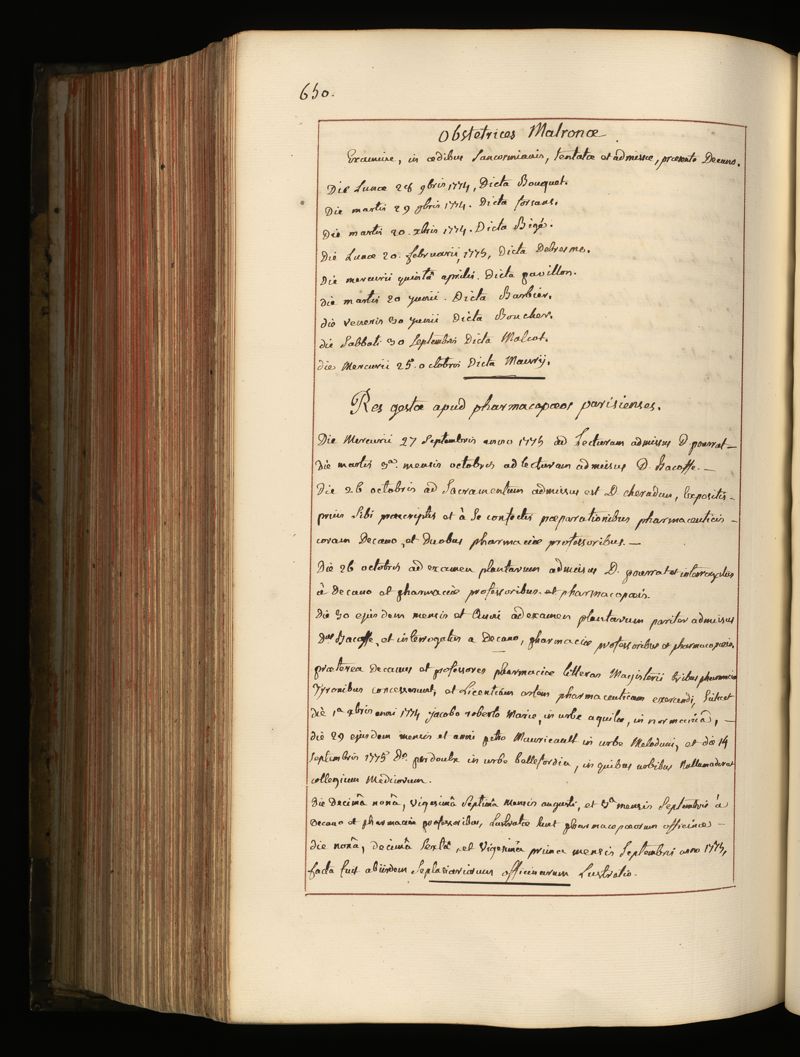 650.
Obstetrices Matronæ
Examine, in ædibus Sancosmianis, tentatæ et admissæ, præsente Decano.
Die Lunæ 28 9bris 1774, Dicta Bouquet.
Die martis 29 9bris 1774. Dicta forsans.
Die martis 20. xbris 1774. Dicta Bigé.
Die Lunæ 20. februarii, 1775, Dicta Debresme.
Die mercurii quintâ aprilis. Dicta pavillon.
die martis 20 junii. Dicta Barbier.
die veneris 30 junii Dicta Boucher.
die Sabbati 30 Septembris Dicta Malcot.
die Mercurii 25. octobris Dicta Maury.
Res gestæ apud pharmacopæos parisienses.
Die Mercurii 27 Septembris anno 1775 ad Lecturam admissus D. pourrat –
die martis 3a. mensis octobris ad lecturam admissus D. Bacoffe. –
Die 26 octobris ad Sacramentum admissus est D. cheradam, Expositis –
prius Sibi præscriptis et à Se confectis præparationibus pharmaceuticis –
coram Decano, et Duobus pharmaciæ professoribus. –
Die 26 octobris ad examen plantarum admissus D. pourrat et interrogatus
à Decano et pharmaciæ professoribus. et pharmacopæis.
die 30 ejusdem mensis et Anni ad examen plantarum pariter admissus
Dus Bacoffe, et interrogatus a Decano, pharmaciæ professoribus et pharmacopæis,
præterea Decanus et professores pharmaciæ litteras Magisterii tribus pharmaciæ
Tyronibus concesserunt, et Licentiam artem pharmaceuticam exercendi, Scilicet
die 1a xbris anni 1774 jacobo roberto Marie, in urbe aquilæ, in normaniâ, –
die 29 ejusdem mensis et anni petro Mauricault in urbe Meloduni, et die 14
Septembris 1775 Do. perdoulx in urbe bellefordia, in quibus urbibus Nullum aderat
collegium Medicorum.
die Decimâ nonâ, Vigesimâ Septimâ Mensis augusti, et 5a mensis Septembris à
Decano et pharmaciæ professoribus, Lustratæ sunt pharmacopæorum officinæ –
die nonâ, decimâ Sextâ, et Vigesimâ prima mensis Septembris anno 1775,
facta fuit abiisdem Seplasiariarum officinarum Lustratio.